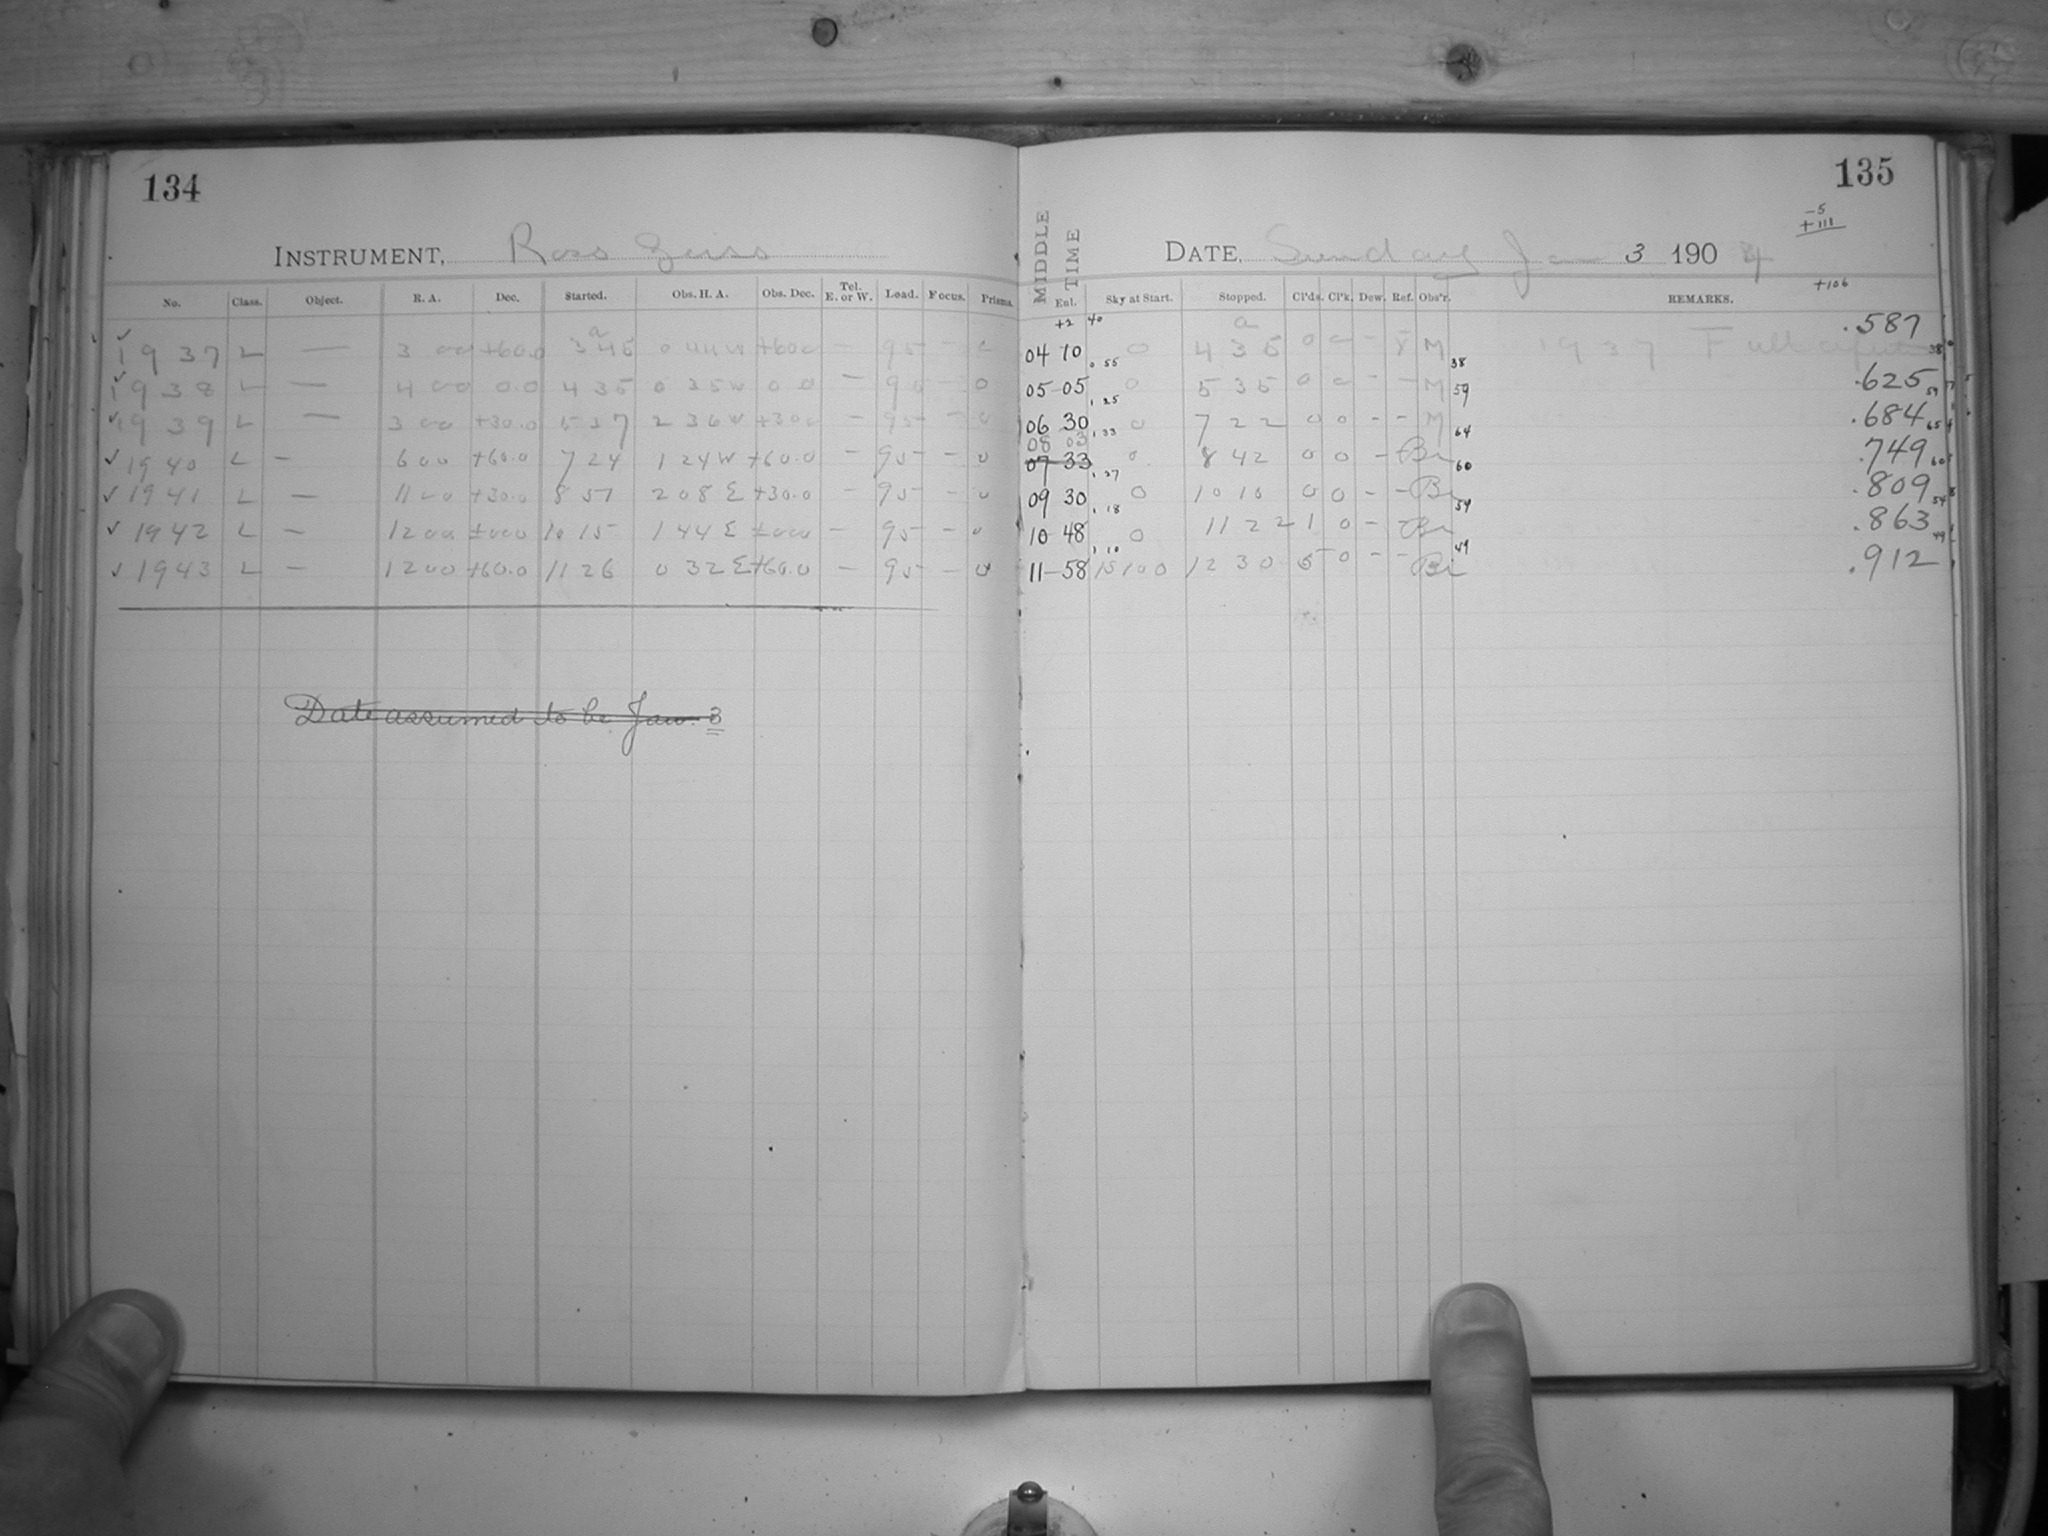 134
135
-5
+111
INSTRUMENT, Ross Zeiss
MIDDLE TIME
DATE, Sunday Jan 3 1904
No. Class. Object. R. A. Dec. Started. Obs. H. A. Obs. Dec. Tel. E. or W. Load. Focus. Prisms. Ent. Sky at Start. Stopped. Cl'ds. Cl'k. Dew. Ref. Obs'r. REMARKS. +106
+2 40
✓ 1937 L — 3 00 +60.0 a 3 45 0 44 W +60 0 — 95 — 0 04 10 0 a 4 35 0 0 - M 1937 Full .587
0 55 38
✓ 1938 L — 4 00 0.0 4 35 0 35 W 0 0 — 95 — 0 05-05 0 5 35 0 0 - - M .625
1,25 59
✓ 1939 L — 3 00 +30.0 5 37 2 36 W +30 0 — 95 — 0 06 30 0 7 22 0 0 - - M .684
1,33 08 03 64
✓ 1940 L — 6 00 +60.0 7 24 1 24 W +60.0 — 95 — 0 07 33 0 8 42 0 0 - - Bi .749
1,27 60
✓ 1941 L — 11 00 +30.0 8 51 2 08 E +30.0 — 95 — 0 09 30 0 10 10 0 0 - - Bi .809
1,18 54
✓ 1942 L — 12 00 ±000 10 15 1 44 E ±000 — 95 — 0 10 48 0 11 22 1 0 - - Bi .863
1,10 49
✓ 1943 L — 12 00 +60.0 11 26 0 32 E +60.0 — 95 — 0 11-58 15100 12 30 5 0 - - Bi .912
Date assumed to be Jan. 3